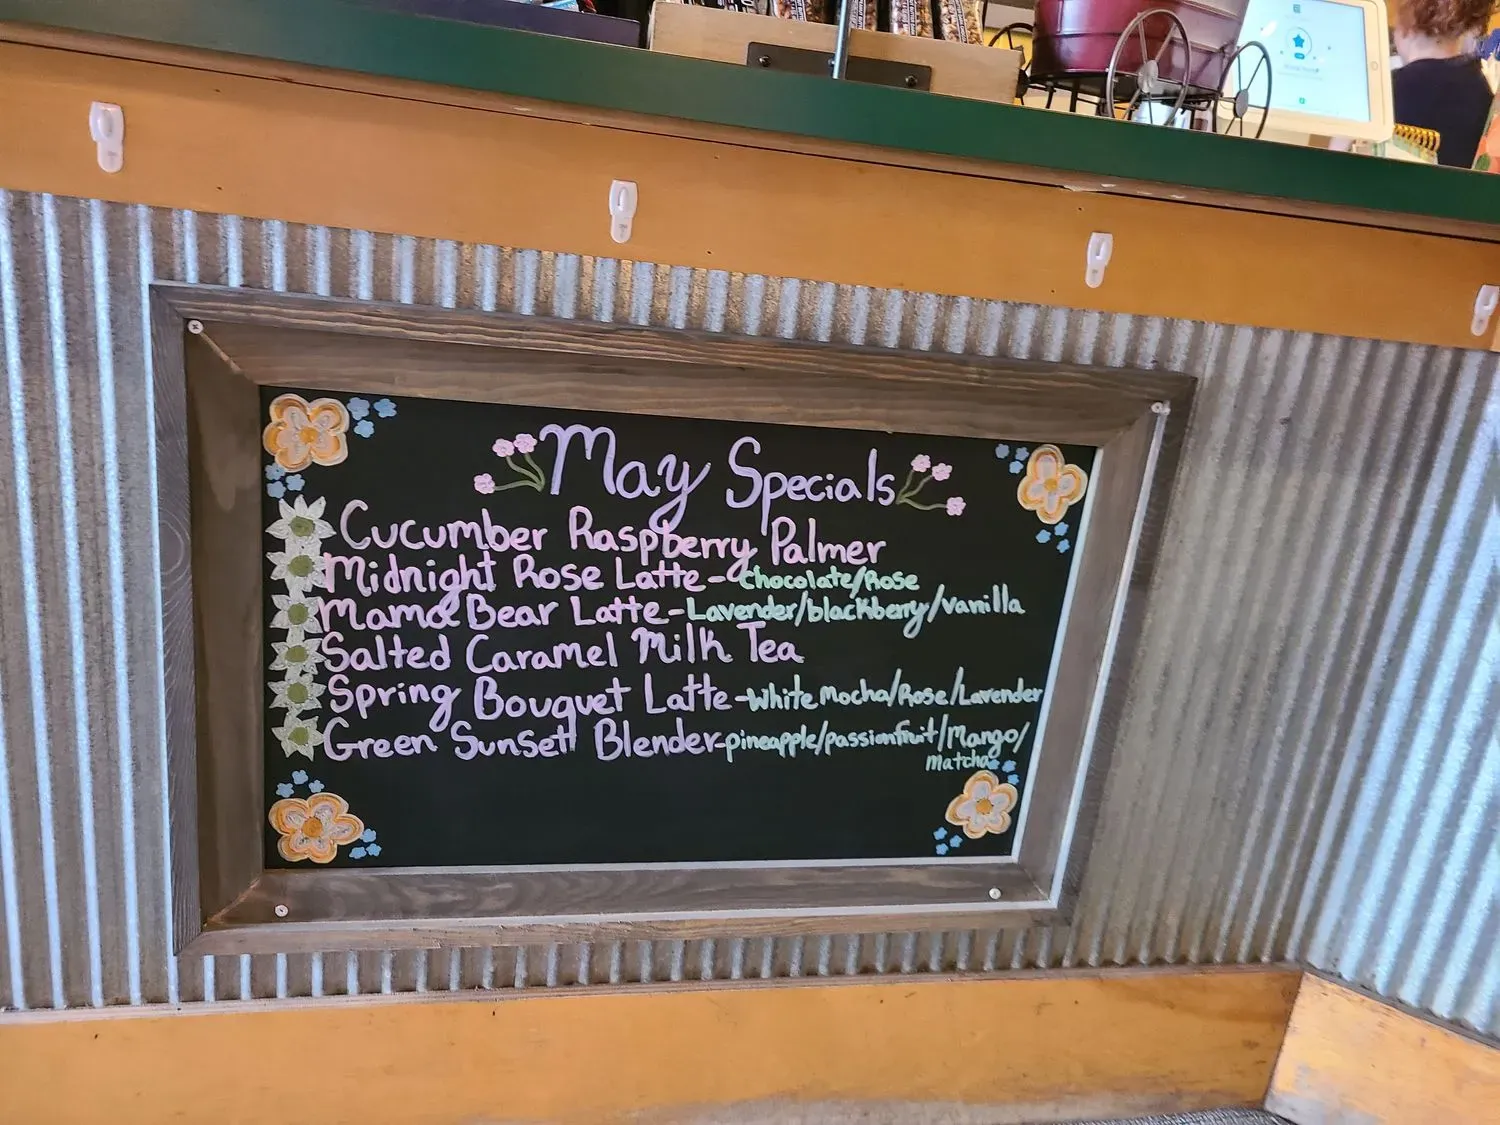 May Specials
Cucumber Raspberry Palmer
Midnight Rose Latte - Chocolate/Rose
Mama Bear Latte - Lavender/blackberry/vanilla
Salted Caramel Milk Tea
Spring Bouquet Latte - White Mocha/Rose/Lavender
Green Sunset Blender - pineapple/passionfruit/Mango/
Matcha